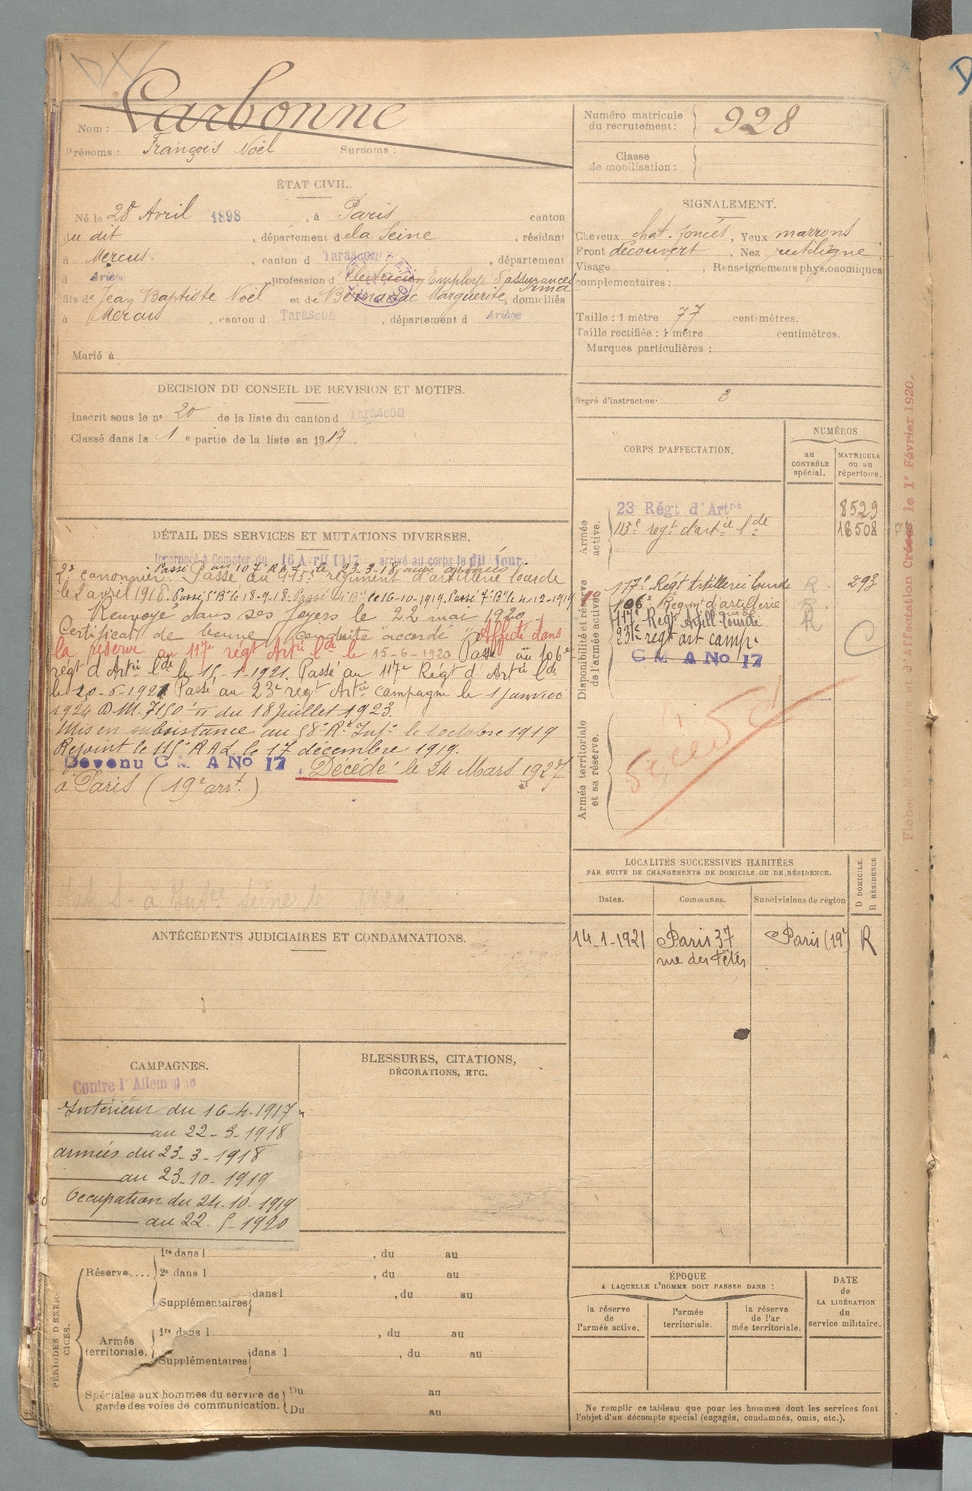 Carbonne
Nom :
Prénoms : François Noël Surnoms :
Numéro matricule du recrutement : 928
Classe de mobilisation :
ÉTAT CIVIL.
Né le 28 Avril 1898, à Paris canton
du dit, département de la Seine, résidant
à Mercus, canton d Tarascon, département
d Ariège, profession d Employé d'assurances
fils de Jean Baptiste Noël et de Marguerite, domiciliés
à Mercus, canton d Tarascon, département d Ariège
Marié à
SIGNALEMENT.
Cheveux chat. foncés, Yeux marrons
Front découvert, Nez rectiligne
Visage , Renseignements physionomiques
complémentaires :
Taille : 1 mètre 77 centimètres.
Taille rectifiée : 1 mètre centimètres.
Marques particulières :
Degré d'instruction : 3
DÉCISION DU CONSEIL DE REVISION ET MOTIFS.
Inscrit sous le n° 20 de la liste du canton d Tarascon
Classé dans la 1e partie de la liste en 1917.
DÉTAIL DES SERVICES ET MUTATIONS DIVERSES.
Incorporé à Compter du 16 Avril 1917 arrivé au corps le dit jour.
Passé au 107 R A L le 23-3-18
2e canonnier. Passé au 115e régiment d'artillerie lourde
le 2 avril 1918. le 18-9-18. le 16-10-1919. Passé 7e Bie le 4-12-1919
Renvoyé dans ses foyers le 22 mai 1920
Certificat de bonne conduite "accordé" Affecté dans
la réserve au 117e régt Artie lde le 15-6-1920 Passé au 106e
régt d'Artie lde le 15-1-1921. Passé au 117e Régt d'Artie lde
le 20-5-1921 Passé au 23e régt Artie campagne le 1 janvier
1924 D.M. 7150 du 18 Juillet 1923.
Mis en subsistance au 58e Rt Infie le 1 octobre 1919
Rejoint le 115e R A L le 17 décembre 1919.
Devenu C M A No 17. Décédé le 24 Mars 1927
à Paris (19e arrt.)
CORPS D'AFFECTATION.
NUMÉROS
au CONTRÔLE spécial.
MATRICULE ou au répertoire.
Armée active.
23 Régt d'Artrie 8529
115e régt d'artie lde 18508
Disponibilité et réserve de l'armée active.
117e Régt Artillerie lourde R 293
106e Régim d'artillerie R
117e Régt Artill lourde R
23e régt art campe
C M A No 17
C
Armée territoriale et sa réserve.
Décédé
LOCALITÉS SUCCESSIVES HABITÉES
PAR SUITE DE CHANGEMENTS DE DOMICILE OU DE RÉSIDENCE.
Dates. Communes. Subdivisions de région D DOMICILE. R RÉSIDENCE
14-1-1921 Paris 37 Paris (19e) R
rue des Fêtes
ANTÉCÉDENTS JUDICIAIRES ET CONDAMNATIONS.
CAMPAGNES.
Contre l'Allemagne
Intérieur du 16-4-1917
au 22-3-1918
armées du 23-3-1918
au 23-10-1919
Occupation du 24-10-1919
au 22-5-1920
BLESSURES, CITATIONS,
DÉCORATIONS, ETC.
PÉRIODES D'EXERCICES.
Réserve.... 1re dans l , du au
2e dans l , du au
Supplémentaires dans l , du au
Armée territoriale. 1re dans l , du au
Supplémentaires dans l , du au
Spéciales aux hommes du service de garde des voies de communication. Du au
Du au
ÉPOQUE
A LAQUELLE L'HOMME DOIT PASSER DANS :
la réserve de l'armée active.
l'armée territoriale.
la réserve de l'armée territoriale.
DATE de LA LIBÉRATION du service militaire.
Ne remplir ce tableau que pour les hommes dont les services font
l'objet d'un décompte spécial (engagés, condamnés, omis, etc.).
d'Affectation Créées le 1er Février 1920.